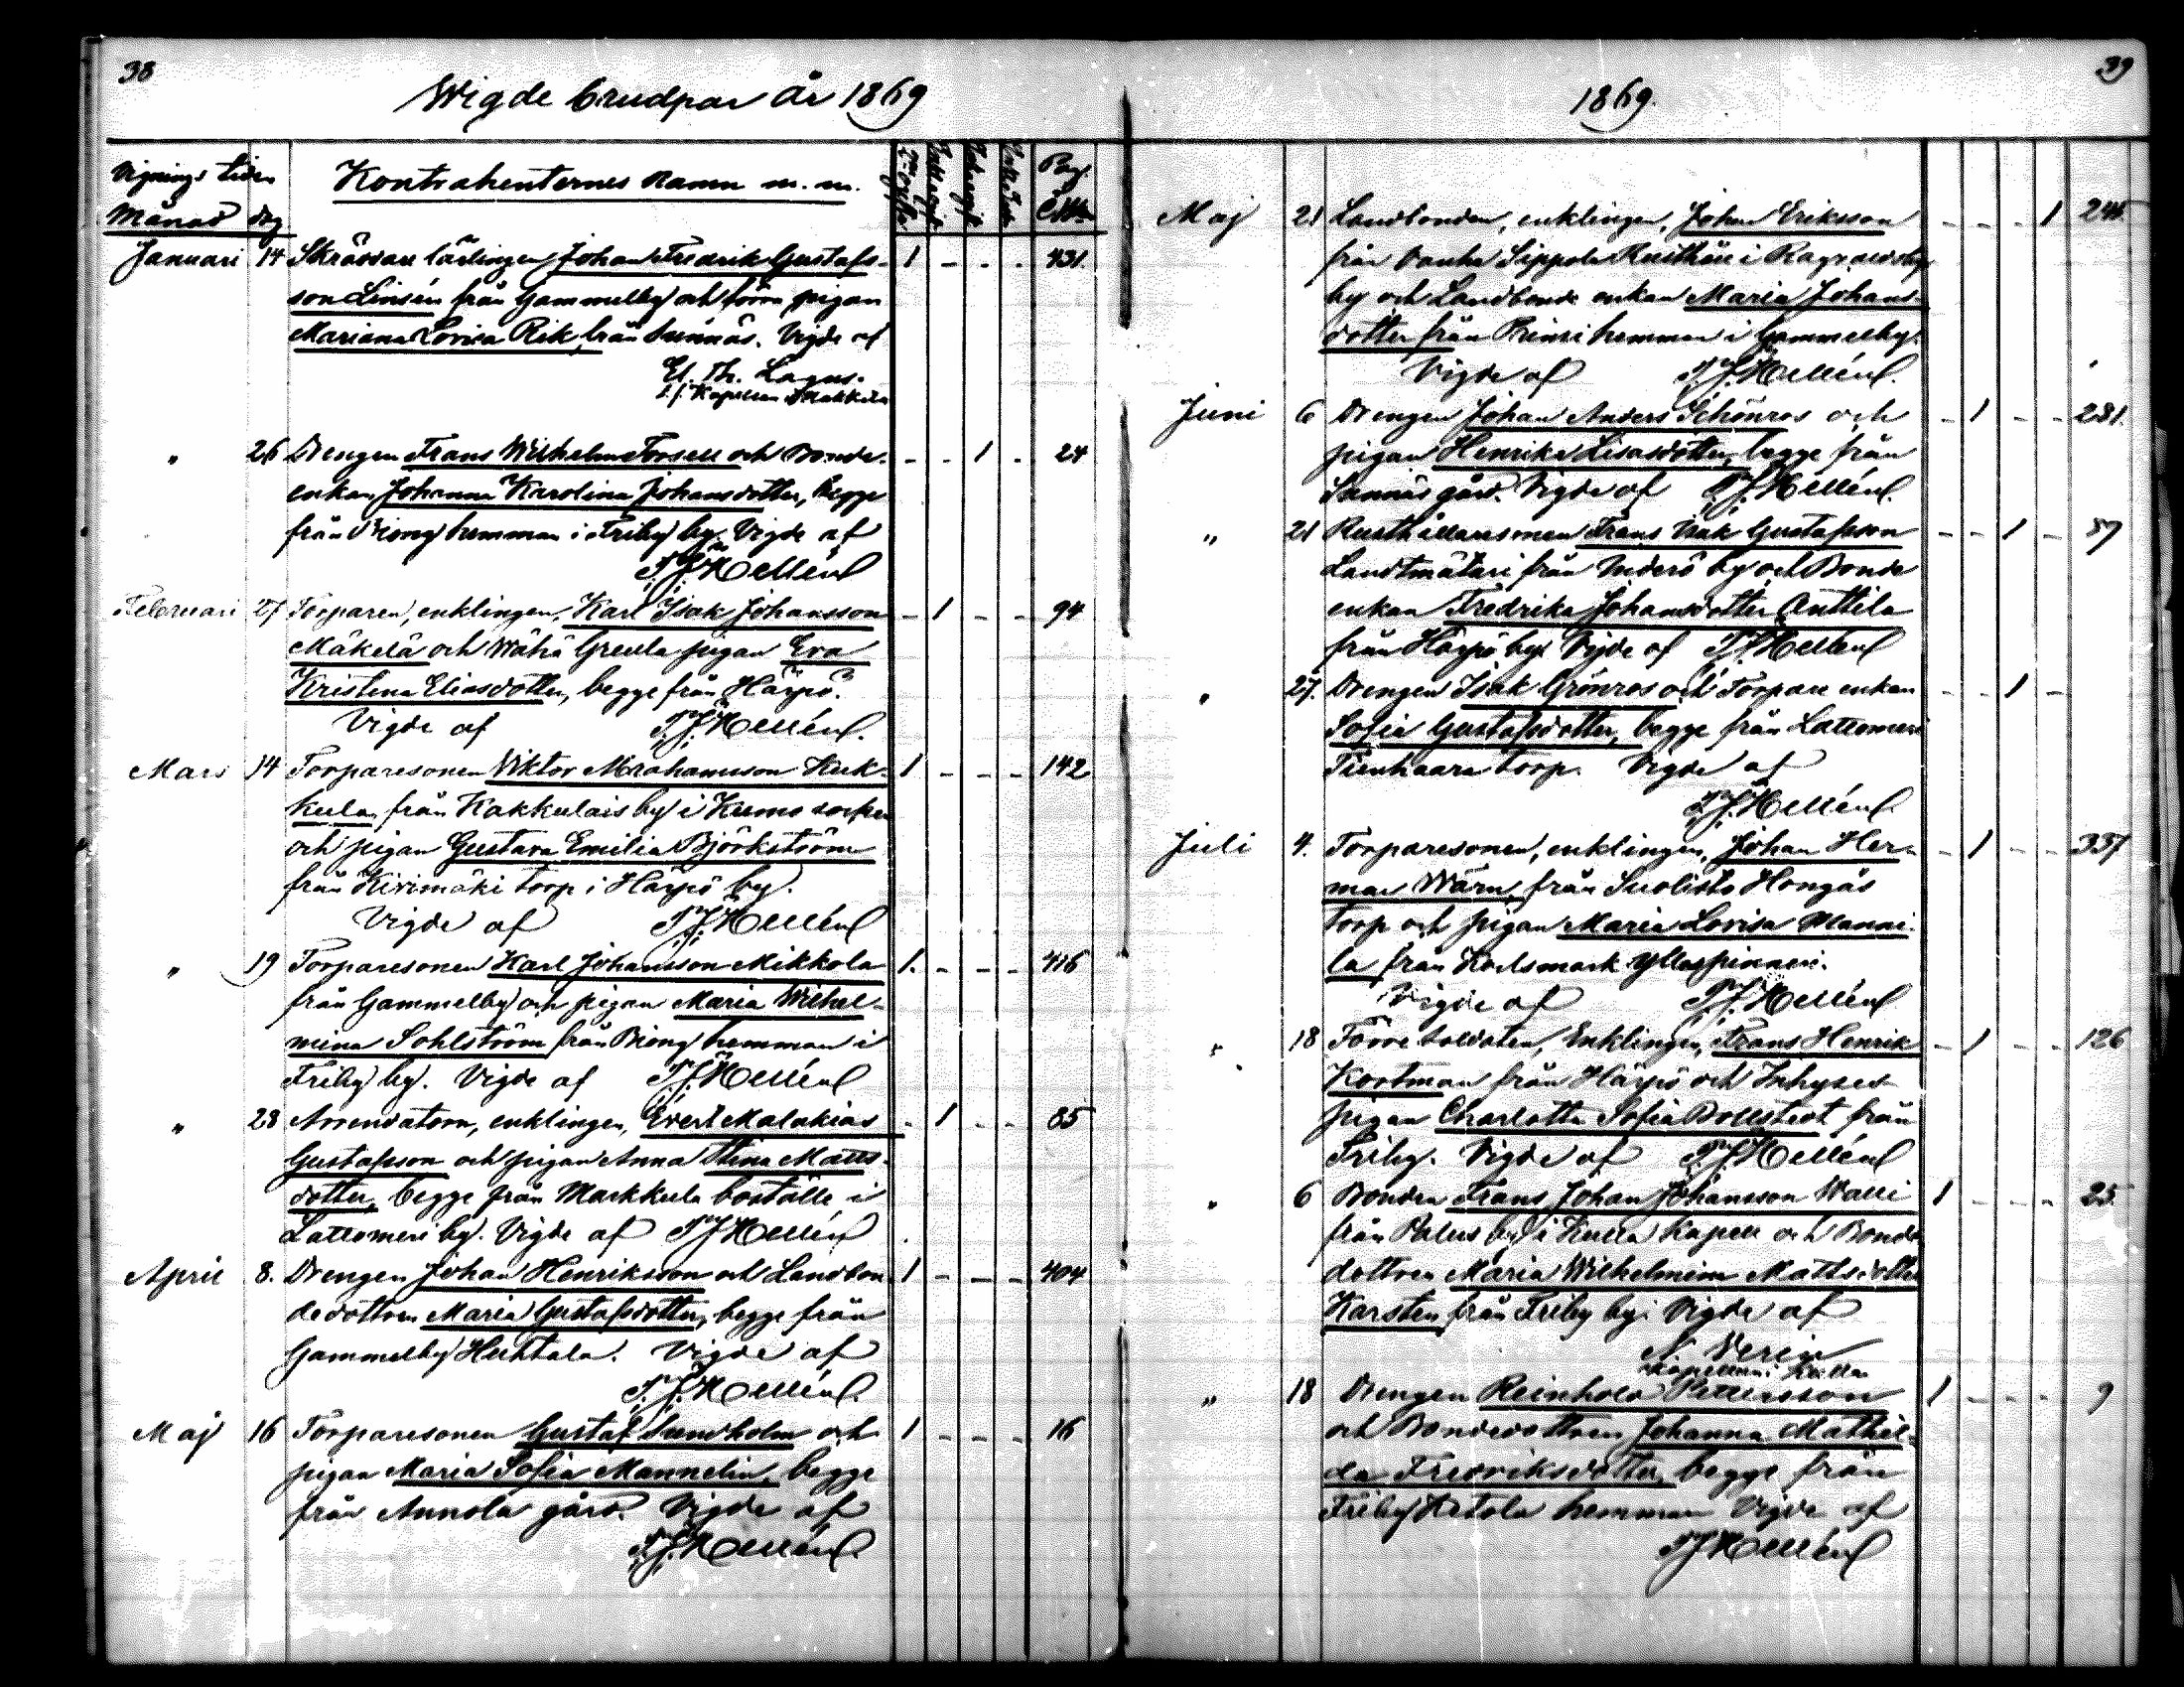 38
Wigde brudpar år 1869
Vignings tiden
Månad dag
Kontrahenternes namn m. m.
Januari 14 Skräddare lärlingen Johan Fredrik Gustafs- 1 - - - 431.
son Linsén från Gammelby och förra pigan
Mariana Lovisa Rik från Sunnäs. Vigde af
El. Th. Lagus.
" 26 Drengen Frans Wilhelm Forsell och Bonde- - - 1 - 24
enkan Johanna Karolina Johansdotter, begge
från Biong hemman i Friby by. Vigde af
Hellén
Februari 27 Torparen, enklingen, Karl Isak Johansson - 1 - - 94
Mäkelä och Wähä Greula pigan Eva
Kristina Eliasdotter, begge från Härpö.
Vigde af Hellén.
Mars 14 Torparesonen Viktor Abrahamsson Kuk- 1 - - - 142
kula från Kakkulais by i Kumo socken
och pigan Gustava Emilia Björkström
från Kivimäki torp i Härpö by.
Vigde af Hellén
" 19 Torparesonen Karl Johansson Mikkola 1. - - - 416
från Gammelby och pigan Maria Wilhel-
mina Sohlström från Biong hemman i
Friby by. Vigde af Hellén
" 28 Arrendatorn, enklingen, Evert Malakias - 1 - - 85
Gustafsson och pigan Anna Stina Matts-
dotter, begge från Markkula boställe i
Lattomeri by. Vigde af Hellén
April 8. Drengen Johan Henriksson och Landbon- 1 - - - 404
dedottren Maria Gustafsdotter, begge från
Gammelby Huhtala. Vigde af
Hellén.
Maj 16 Torparesonen Gustaf Sundholm och 1 - - - 16
pigan Maria Sofia Mannelin, begge
från Annola gård. Vigde af
Hellén.
39
1869.
Maj 21 Landbonden, enklingen, Johan Eriksson - - - 1 244
från Sippola Rusthåll i Ragvalds-
by och Landbonde enkan Maria Johans-
dotter från hemman i Gammelby.
Vigde af Hellén.
Juni 6 Drengen Johan Anders Schönros och - 1 - - 281.
pigan Henrika Lisasdotter, begge från
Sunnäs gård. Vigde af Hellén.
" 21 Rusthållaresonen Frans Isak Gustafsson - - 1 - 57
Landtmätari från by och Bonde
enkan Fredrika Johansdotter Anttila
från Härpö by. Vigde af Hellén
" 27. Drengen Isak Grönros och Torpare enkan - - 1 -
Sofia Gustafsdotter, begge från Lattomeri
Tienhaara torp. Vigde af
Hellén.
Juli 4. Torparesonen, enklingen, Johan Her- - 1 - - 337
man Wärn, från Suolisto Hongas
torp och pigan Maria Lovisa Manni-
la från Kortsmark Yllaspinneri.
Vigde af Hellén
" 18 Förre Soldaten, Enklingen, Frans Henrik - 1 - - 126
Kortman från Härpö och Inhyses-
pigan Charlotta Sofia Bollstedt från
Friby. Vigde af Hellén
" 6 Bonden Frans Johan Johansson Walli 1 - - - 25
från Palus by i Kulla Kapell och Bonde
dottren Maria Wilhelmina Mattsdotter
Karsten från Friby by. Vigde af
Kapellan i Kulla
" 18 Drengen Reinhold Pettersson 1 - - - 9
och Bondedottren Johanna Mathil-
da Fredriksdotter, begge från
Friby hemman Vigde af
Hellén